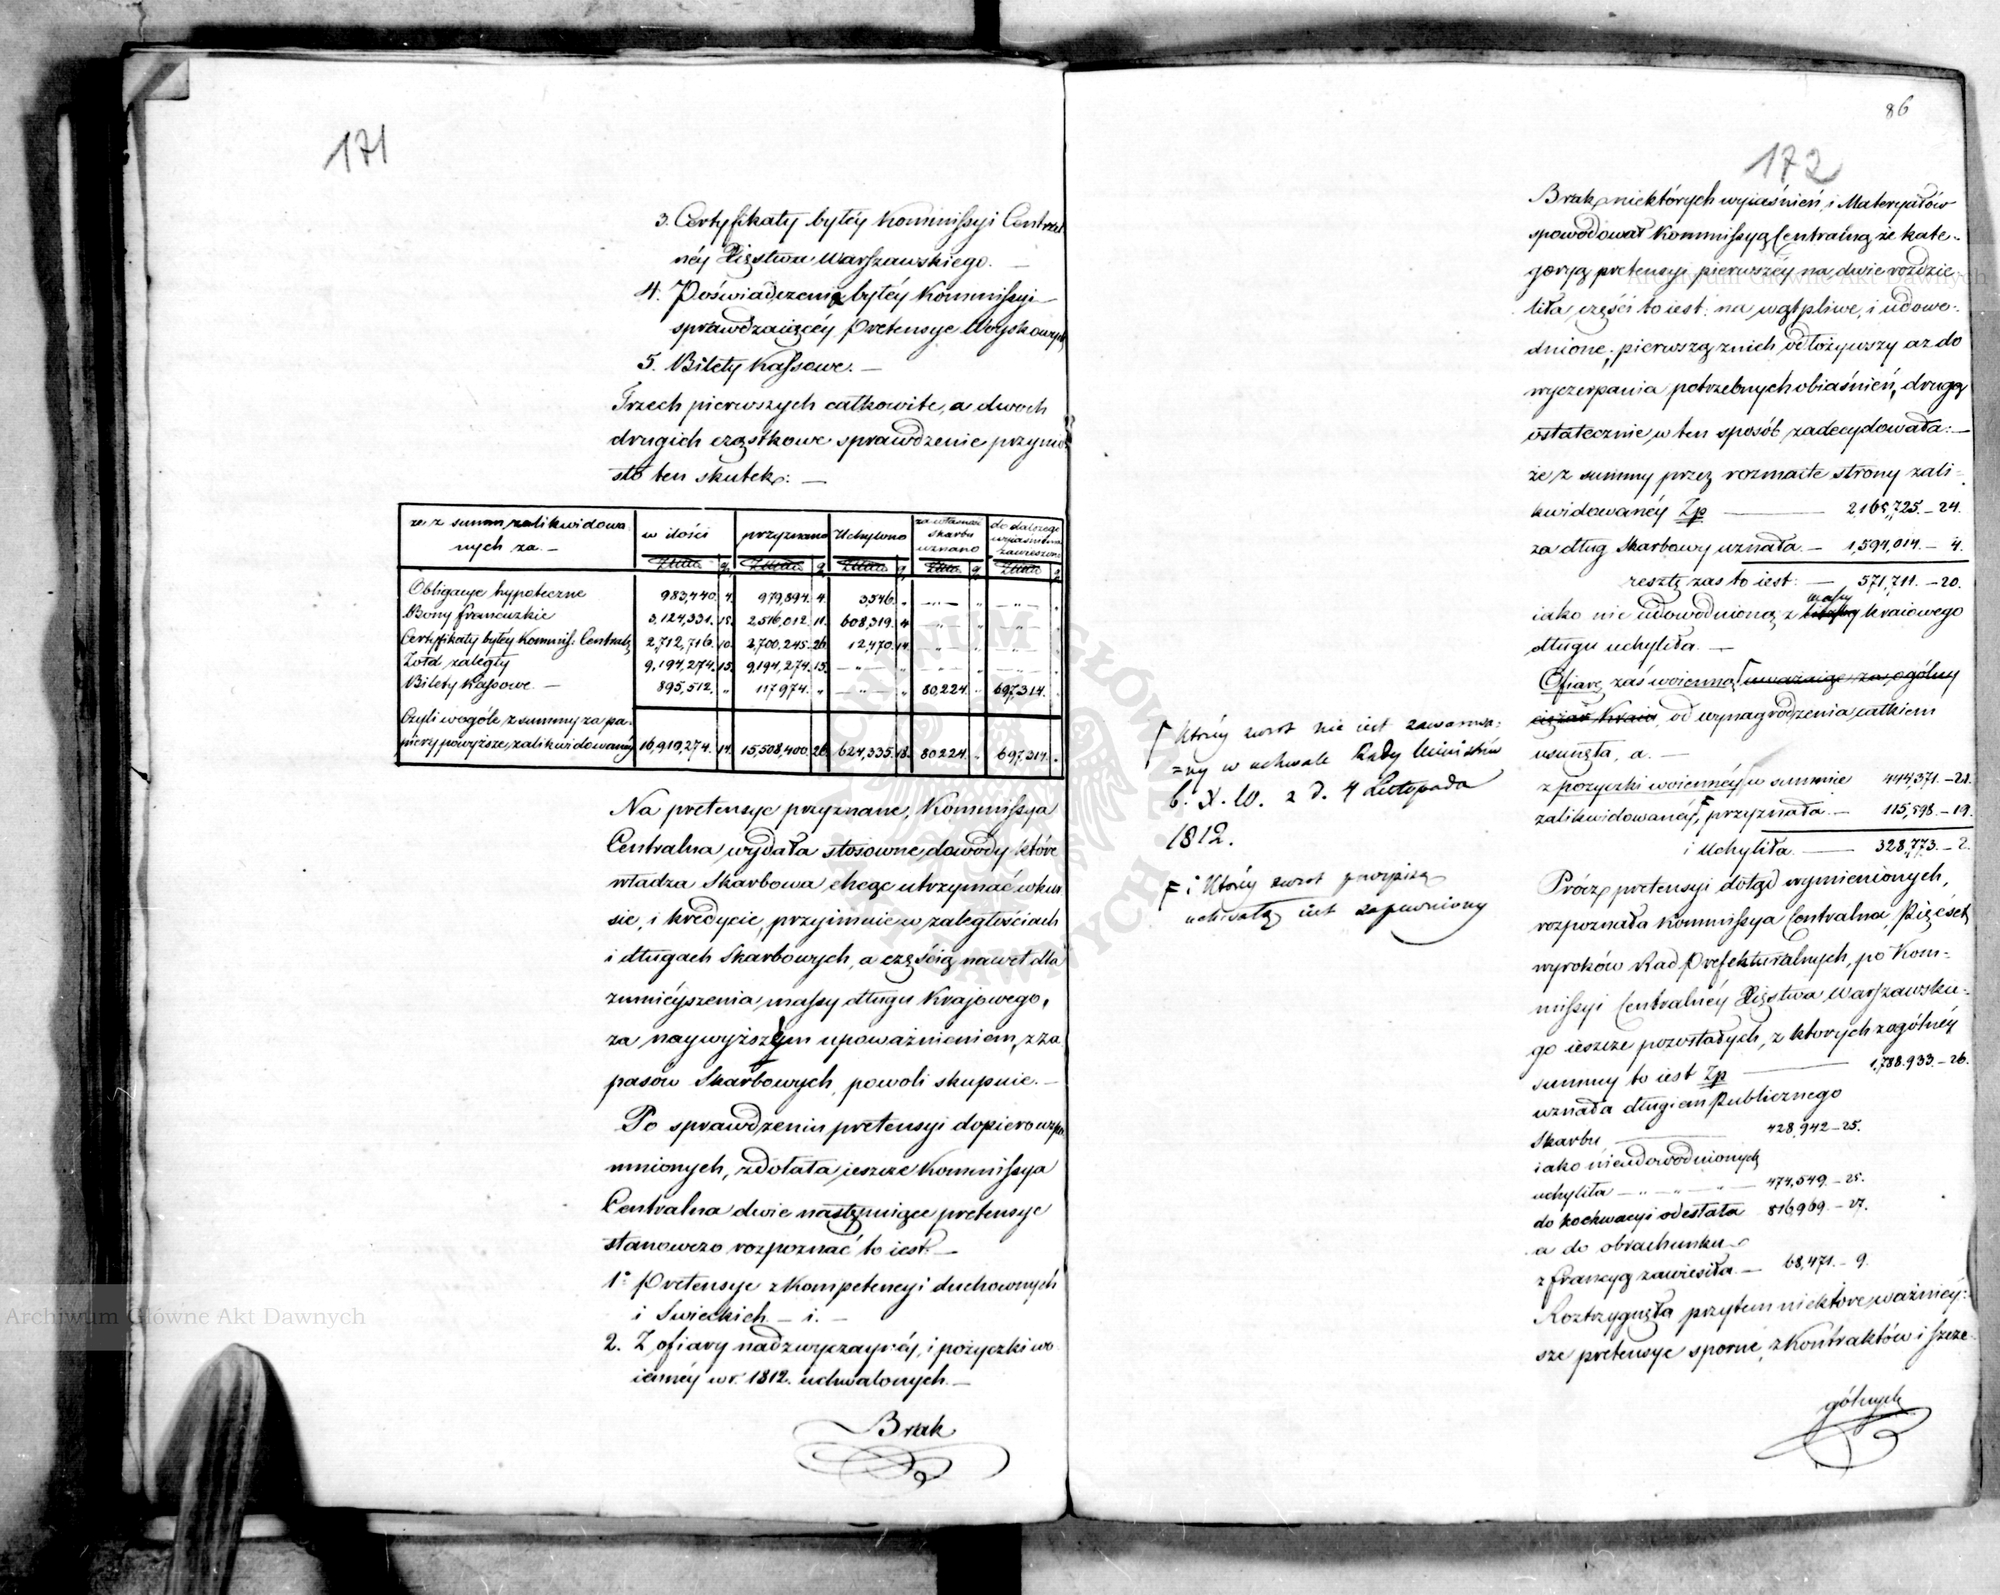 171
3. Certyfikaty byłéy Kommissyi Central
néy Xięstwa Warszawskiego. —
4. Poświadczenia byłéy Kommissyi —
sprawdzaiącéy pretensye Woyskowych
5. Bilety Kassowe. —
Trzech pierwszych całkowite, a dwóch
drugich cząstkowe sprawdzenie przynio
sło ten skutek: —
że z summ zalikwidowa
nych za. —
w ilości
przyznano
Uchylono
za własność
skarbu
uznano
do dalszego
wyiaśnienia
zawieszono
Obligacye hypoteczne 983,440. 4. 979,894. 4. 3,546. „ — „ — „ — „ — „
Bony francuzkie 3,124,331. 15. 2516,012. 11. 608,319. 4 — „ — „ — „ — „
Certyfikaty byłéy Kommiss: Centralń 2,712,716. 10. 2,700,245. 26. 12,470. 14. — „ — „ — „
Żołd zaległy 9,194,274. 15. 9,194,274. 15. — „ — „ — „ — „
Bilety Kassowe. — 895,512. „ 117974. „ — „ — „ 80,224. „ 697,314. „
Czyli wogóle z summy za pa
piery powyższe, zalikwidowanéy 16,910,274. 14. 15,508,400. 26. 624,335. 18. 80224. „ 697,314. „
Na pretensye przyznane, Kommissya
Centralna wydała stosowne dowody które
władza Skarbowa chcąc utrzymać w kur
sie, i kredycie, przyimuie w zaległościach
i długach Skarbowych, a częścią nawet dla
zmnieyszenia massy długu Krajowego,
za naywyższym upoważnieniem, z za
pasów Skarbowych, powoli skupuie. —
Po sprawdzeniu pretensyi dopiero wspo
mnionych, zdołała ieszcze Kommissya
Centralna dwie następuiące pretensye
stanowczo rozpoznać to iest: —
1° Pretensye z Kompetencyi duchownych
i Świeckich — i. —
2. Z ofiary nadzwyczaynéy, i pożyczki wo
iennéy w r. 1812. uchwalonych. —
Brak
86
172
Brak niektórych wyiaśnień, i Materyałów
spowodował Kommissyą Centralną że kate-
goryą pretensyi pierwszéy na dwie rozdzie
liła części to iest: na wątpliwe, i udowo-
dnione; pierwszą z nich odłożywszy aż do
wyczerpania potrzebnych obiaśnień, drugą
ostatecznie w ten sposób zadecydowała: —
że z summy przez rozmaite strony zali-
kwidowanéy Zp — 2,165,725. — 24.
za dług Skarbowy uznała. — 1,594,014. — 4.
resztę zaś to iest: — 571,711. — 20.
massy
iako nie udowodnioną z kraiowego
długu uchyliła. —
Ofiarę zaś woienną uważaiąc za ogólny
ciężar Kraiu, od wynagrodzenia całkiem
usunęła, a. —
z pożyczki woiennéy w summie 444,371. — 21.
zalikwidowanéy, F przyznała. — 115,598. — 19.
i Uchyliła. — 328,773. — 2.
Prócz pretensyi dotąd wymienionych,
rozpoznała Kommissya Centralna, Pięćset
wyroków Rad Prefekturalnych, po Kom-
missyi Centralnéy Xięstwa Warszawskie-
go ieszcze pozostałych, z których z ogólnéy
summy to iest Zp — 1,788,933. — 26.
uznała długiem Publicznego
Skarbu — 428,942 — 25.
iako nieudowodnionych
uchyliła — „ — „ — „ — 474,549. — 25.
odesłała 816,969. — 27.
a do obrachunku
z francyą zawiesiła. — 68,471. — 9.
Roztrzygnęła przytem niektóre ważniey-
sze pretensye sporne, z Kontraktów i szcze-
gólnych
Który zwrot nie iest zawarowa-
zny w uchwale Rady Ministrów
b. X. W. z d. 4 Listopada
1812.
F i Który zwrot powyższą
uchwałą iest zapewniony
Archiwum Główne Akt Dawnych
Archiwum Główne Akt Dawnych